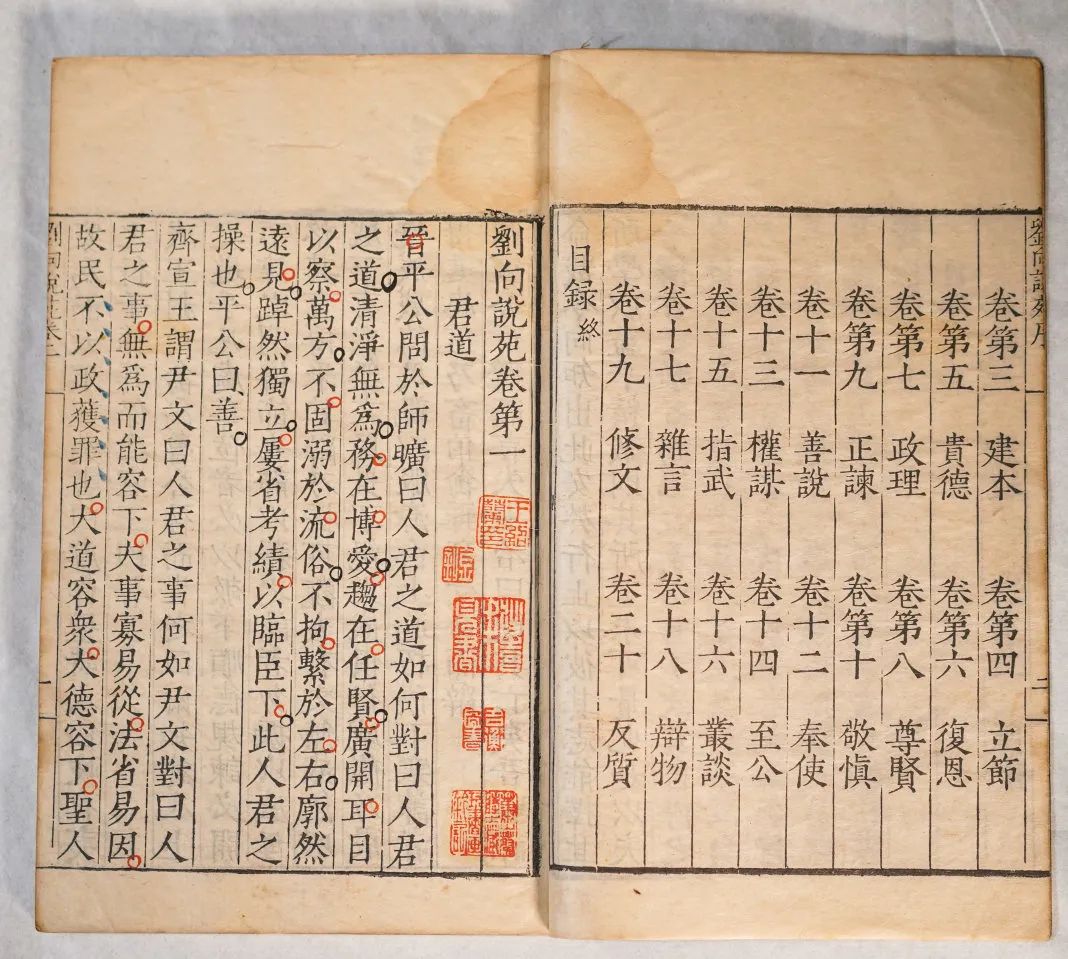 卷第三 建本 卷第四 立節
卷第五 貴德 卷第六 復恩
卷第七 政理 卷第八 尊賢
卷第九 正諫 卷第十 敬慎
卷十一 善說 卷十二 奉使
卷十三 權謀 卷十四 至公
卷十五 指武 卷十六 叢談
卷十七 雜言 卷十八 辯物
卷十九 修文 卷二十 反質
目録終
劉向說苑卷第一
君道
晉平公問於師曠曰人君之道如何對曰人君
之道清淨無爲務在博愛趨在任賢廣開耳目
以察萬方不固溺於流俗不拘繫於左右廓然
遠見踔然獨立屢省考績以臨臣下此人君之
操也平公曰善
齊宣王謂尹文曰人君之事何如尹文對曰人
君之事無爲而能容下夫事寡易從法省易因
故民不以政獲罪也大道容衆大德容下聖人